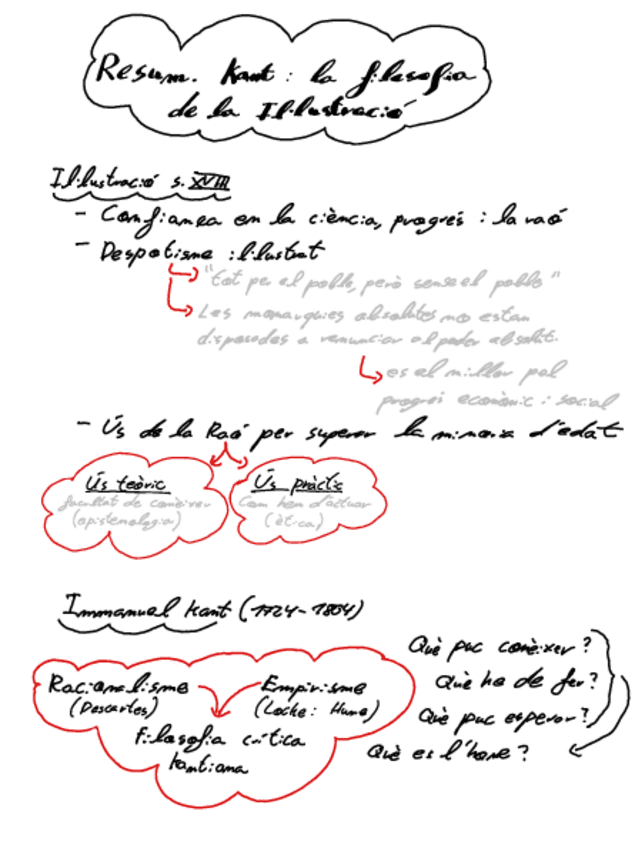 Resum. Kant: la filosofia
de la Il·lustració
Il·lustració s. XVIII
- Confiança en la ciència, progrés i la raó
- Despotisme il·lustrat
"tot pel poble, però sense el poble"
Les monarquies absolutes no estan
disposades a renunciar al poder absolut.
es el millor pel
progrés econòmic i social
- Ús de la Raó per superar la minoria d'edat
Ús teòric
facultat de conèixer
(epistemologia)
Ús pràctic
Com hem d'actuar
(ètica)
Immanuel Kant (1724-1804)
Racionalisme
(Descartes)
Empirisme
(Locke i Hume)
Filosofia crítica
kantiana
Què puc conèixer?
Què he de fer?
Què puc esperar?
Què es l'home?